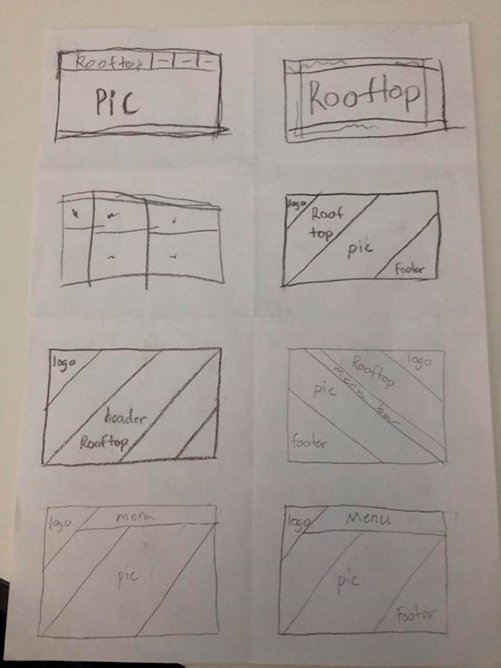 Rooftop
PIC
Rooftop
logo
Roof
top
pic
Footer
logo
header
Rooftop
Rooftop
logo
pic
menu bar
footer
logo
menu
pic
logo
Menu
pic
Footer